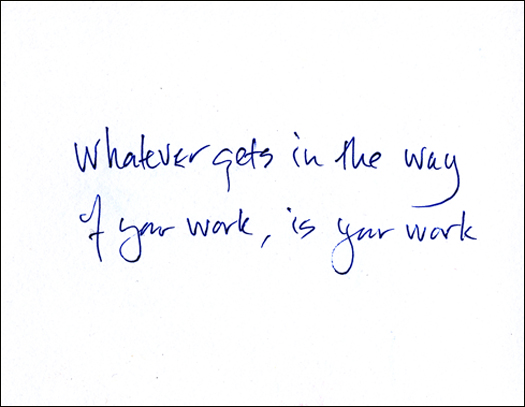 Whatever gets in the way
of your work, is your work